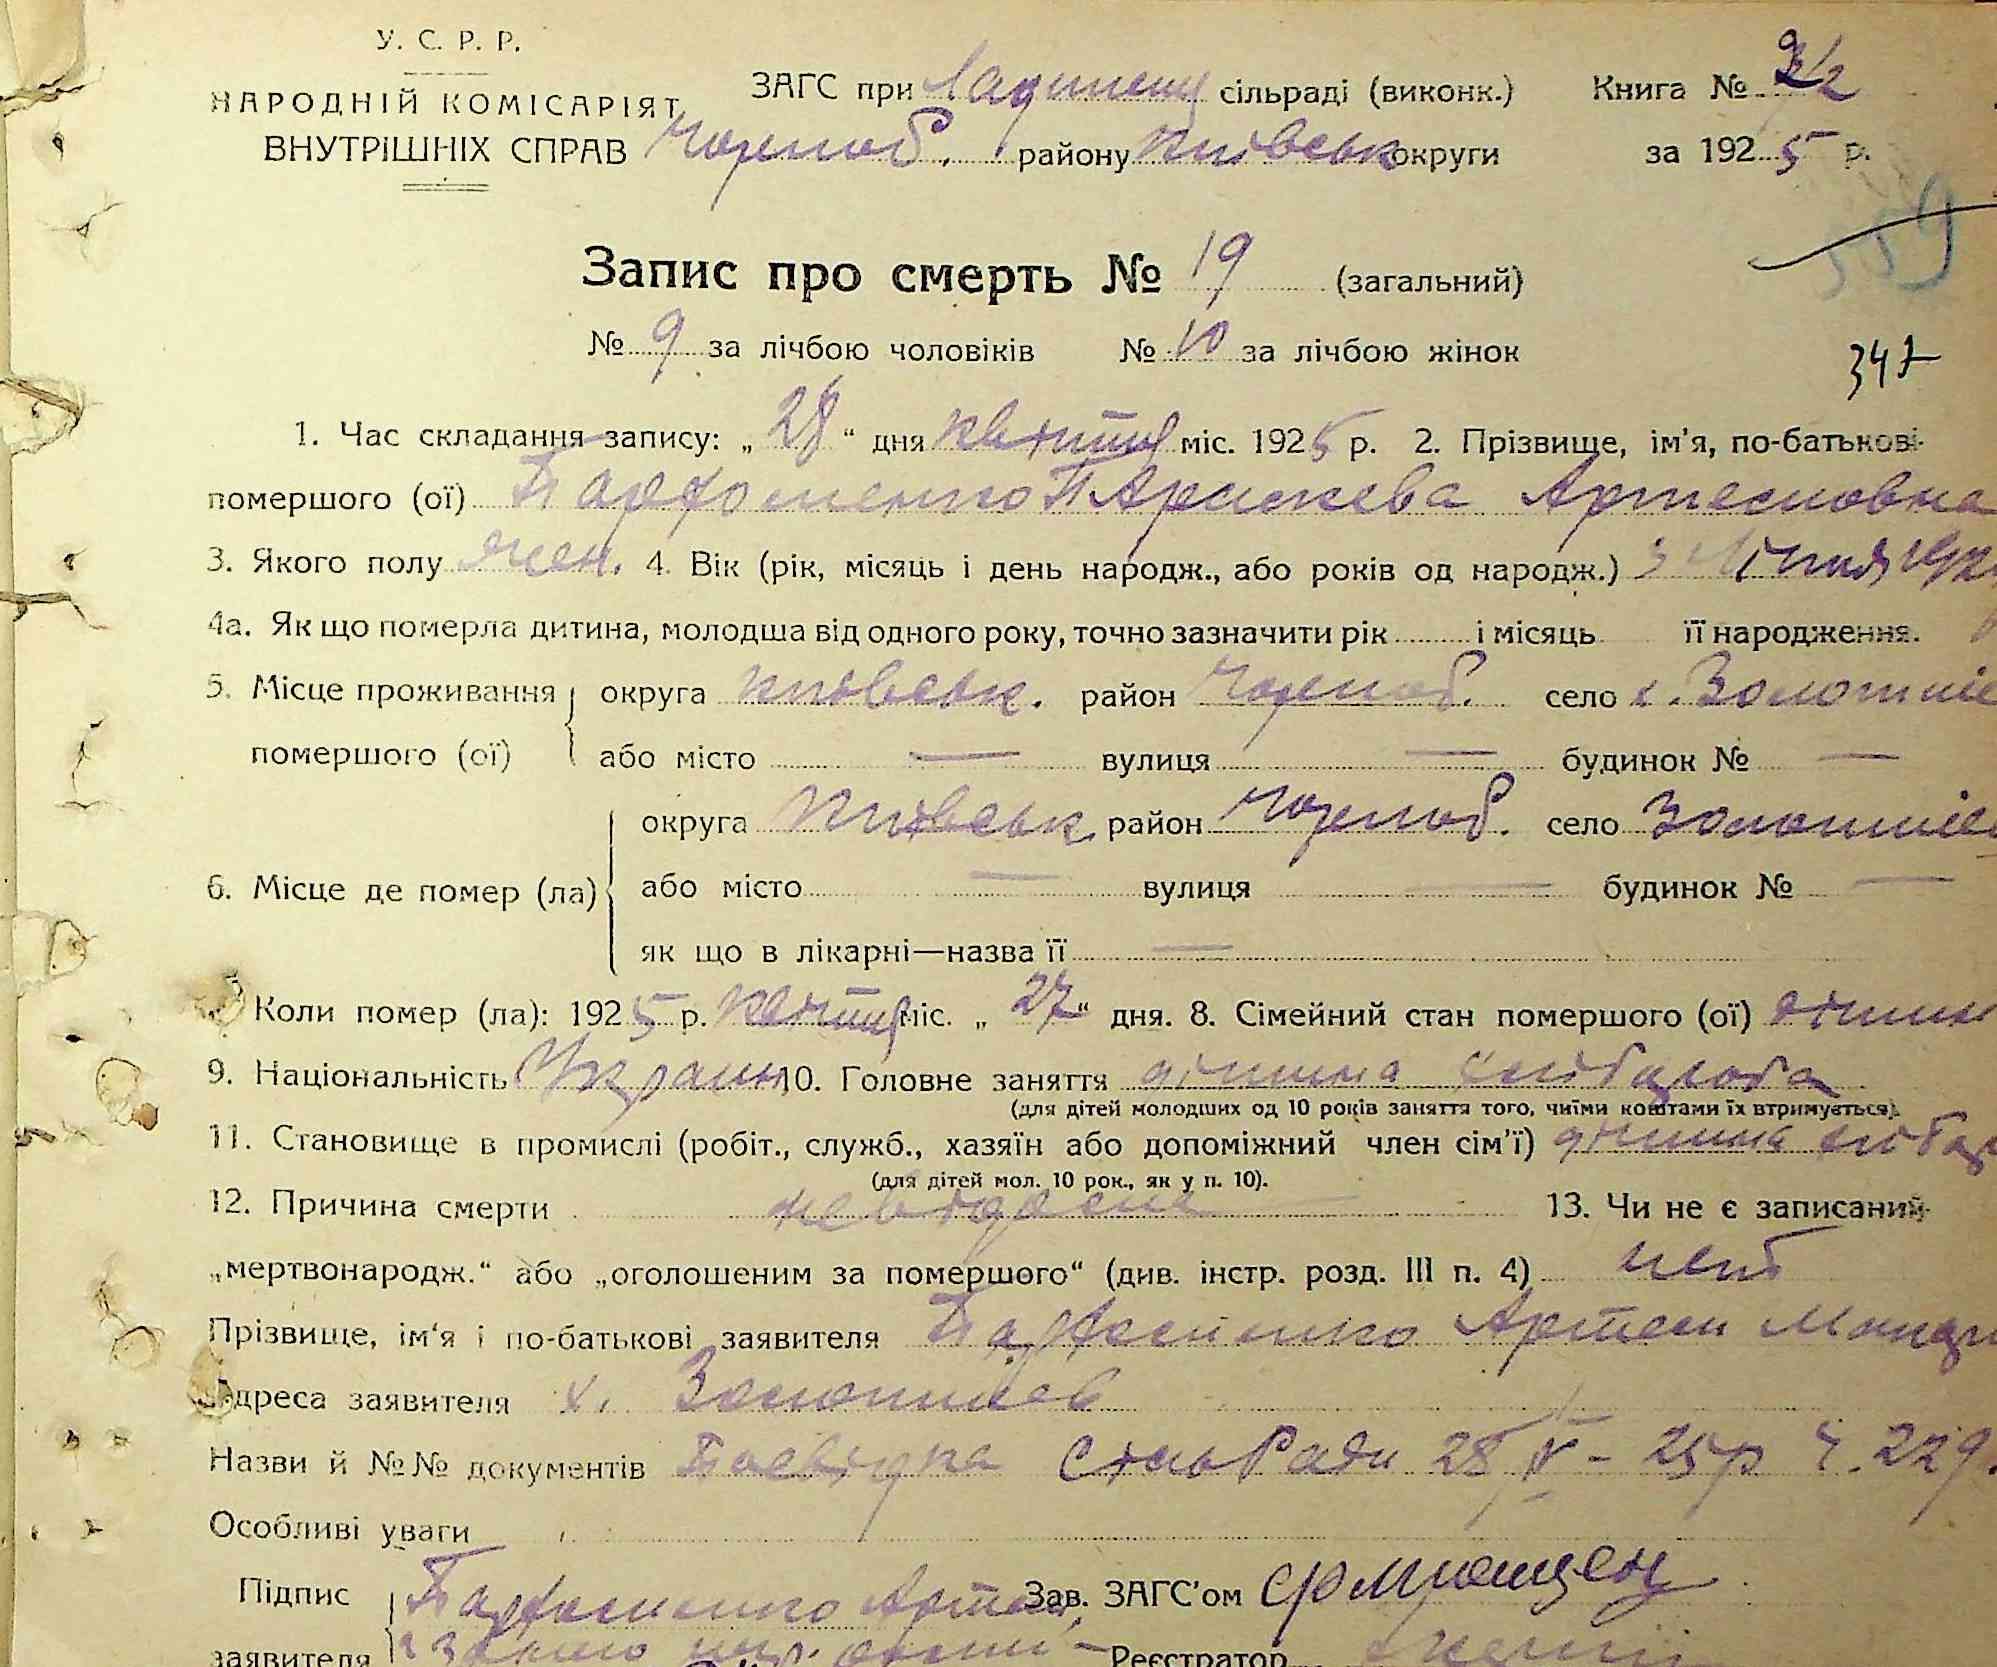 У. С. Р. Р.
НАРОДНІЙ КОМІСАРІЯТ
ВНУТРІШНІХ СПРАВ
ЗАГС при Ладижец сільраді (виконк.) Книга №
Чорноб. району Київськ округи за 1925 р.
559
Запис про смерть № 19 (загальний)
№ 9 за лічбою чоловіків № 10 за лічбою жінок
347
1. Час складання запису: „ 28 “ дня квітня міс. 1925 р. 2. Прізвище, ім’я, по-батькові
помершого (ої) Парфоменко Параскева Артемовна
3. Якого полу жен. 4. Вік (рік, місяць і день народж., або років од народж.) Липня
4а. Як що померла дитина, молодша від одного року, точно зазначити рік і місяць її народження.
5. Місце проживання округа Київськ. район Чорноб. село х. Золотніев
помершого (ої) або місто — вулиця — будинок № —
округа Київськ. район Чорноб. село Золотніев
6. Місце де помер (ла) або місто — вулиця — будинок № —
як що в лікарні—назва її —
Коли помер (ла): 1925 р. квітня міс. „ 27 “ дня. 8. Сімейний стан помершого (ої)
9. Національність Україн. 10. Головне заняття дитина хлібороба
(для дітей молодших од 10 років заняття того, чиїми коштами їх втримується).
11. Становище в промислі (робіт., служб., хазяїн або допоміжний член сім’ї) дитина хлібор
(для дітей мол. 10 рок., як у п. 10).
12. Причина смерти невідома 13. Чи не є записаний
„мертвонародж.“ або „оголошеним за помершого“ (див. інстр. розд. III п. 4) нет
Прізвище, ім‘я і по-батькові заявителя Парфоменко Артем
Адреса заявителя х. Золотніев
Назви й №№ документів Посвідка СільРади 28/IV – 25р Ч. 229.
Особливі уваги
Підпис Парфоменко Артем, Зав. ЗАГС’ом
заявителя Реєстратор